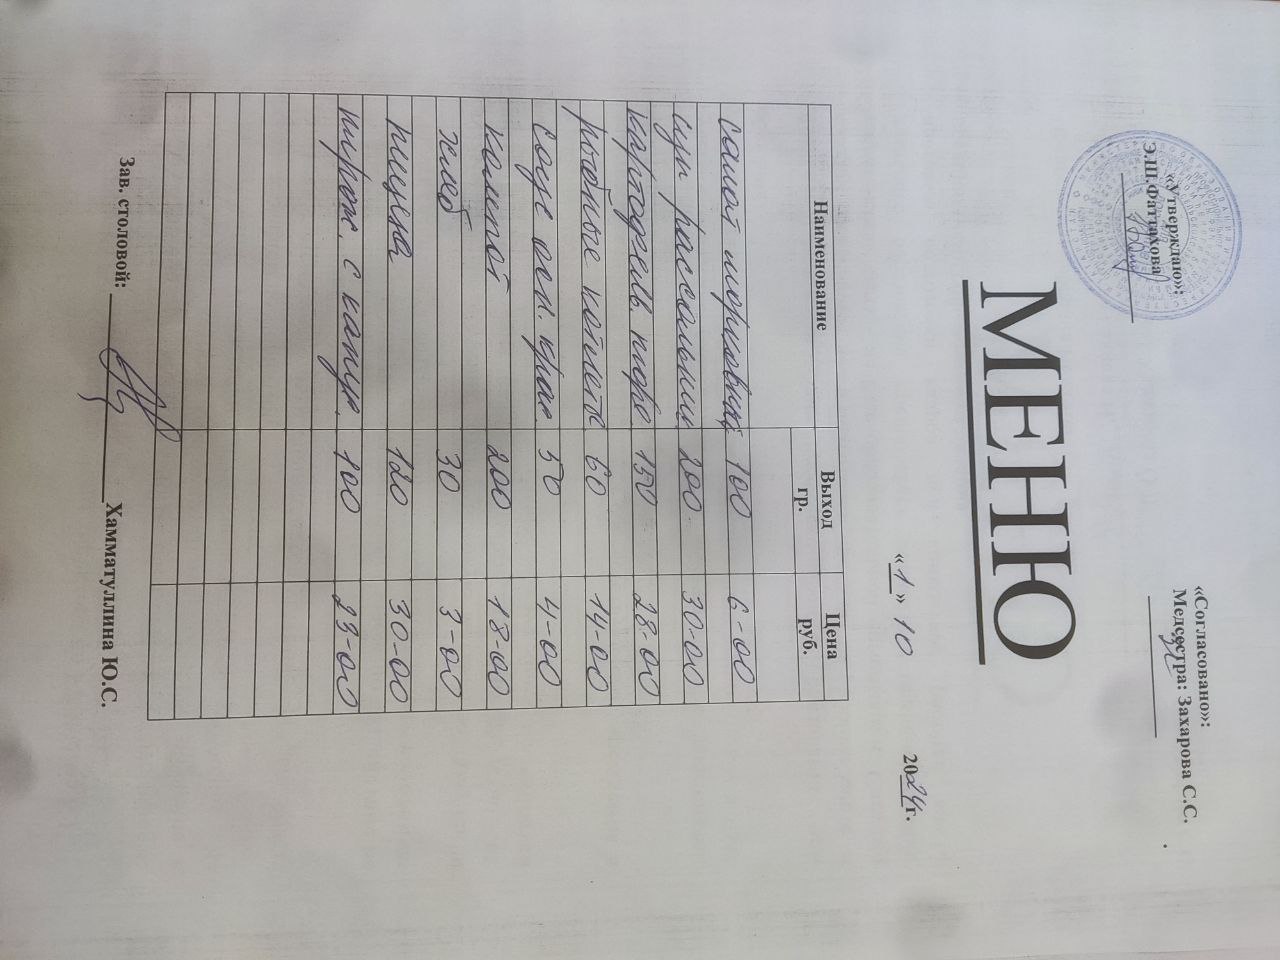 «Утверждаю»:
Э.Ш.Фаттахова
«Согласовано»:
Медсестра: Захарова С.С.
МЕНЮ
«1» 10 2024г.
Наименование Выход гр. Цена руб.
салат морковный 100 6-00
суп рассольник 200 30-00
картофель пюре 150 28-00
рыбные котлеты 60 14-00
соус осн. крас. 50 4-00
компот 200 18-00
хлеб 30 3-00
пицца 120 30-00
пирож. с капус. 100 23-00
Зав. столовой: Хамматуллина Ю.С.